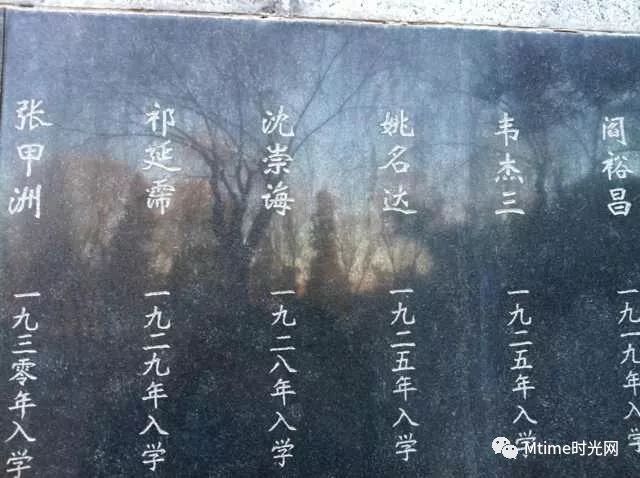 阎裕昌
一九一九年入学
韦杰三
一九二五年入学
姚名达
一九二五年入学
沈崇诲
一九二八年入学
祁延霈
一九二九年入学
张甲洲
一九三零年入学
Mtime时光网